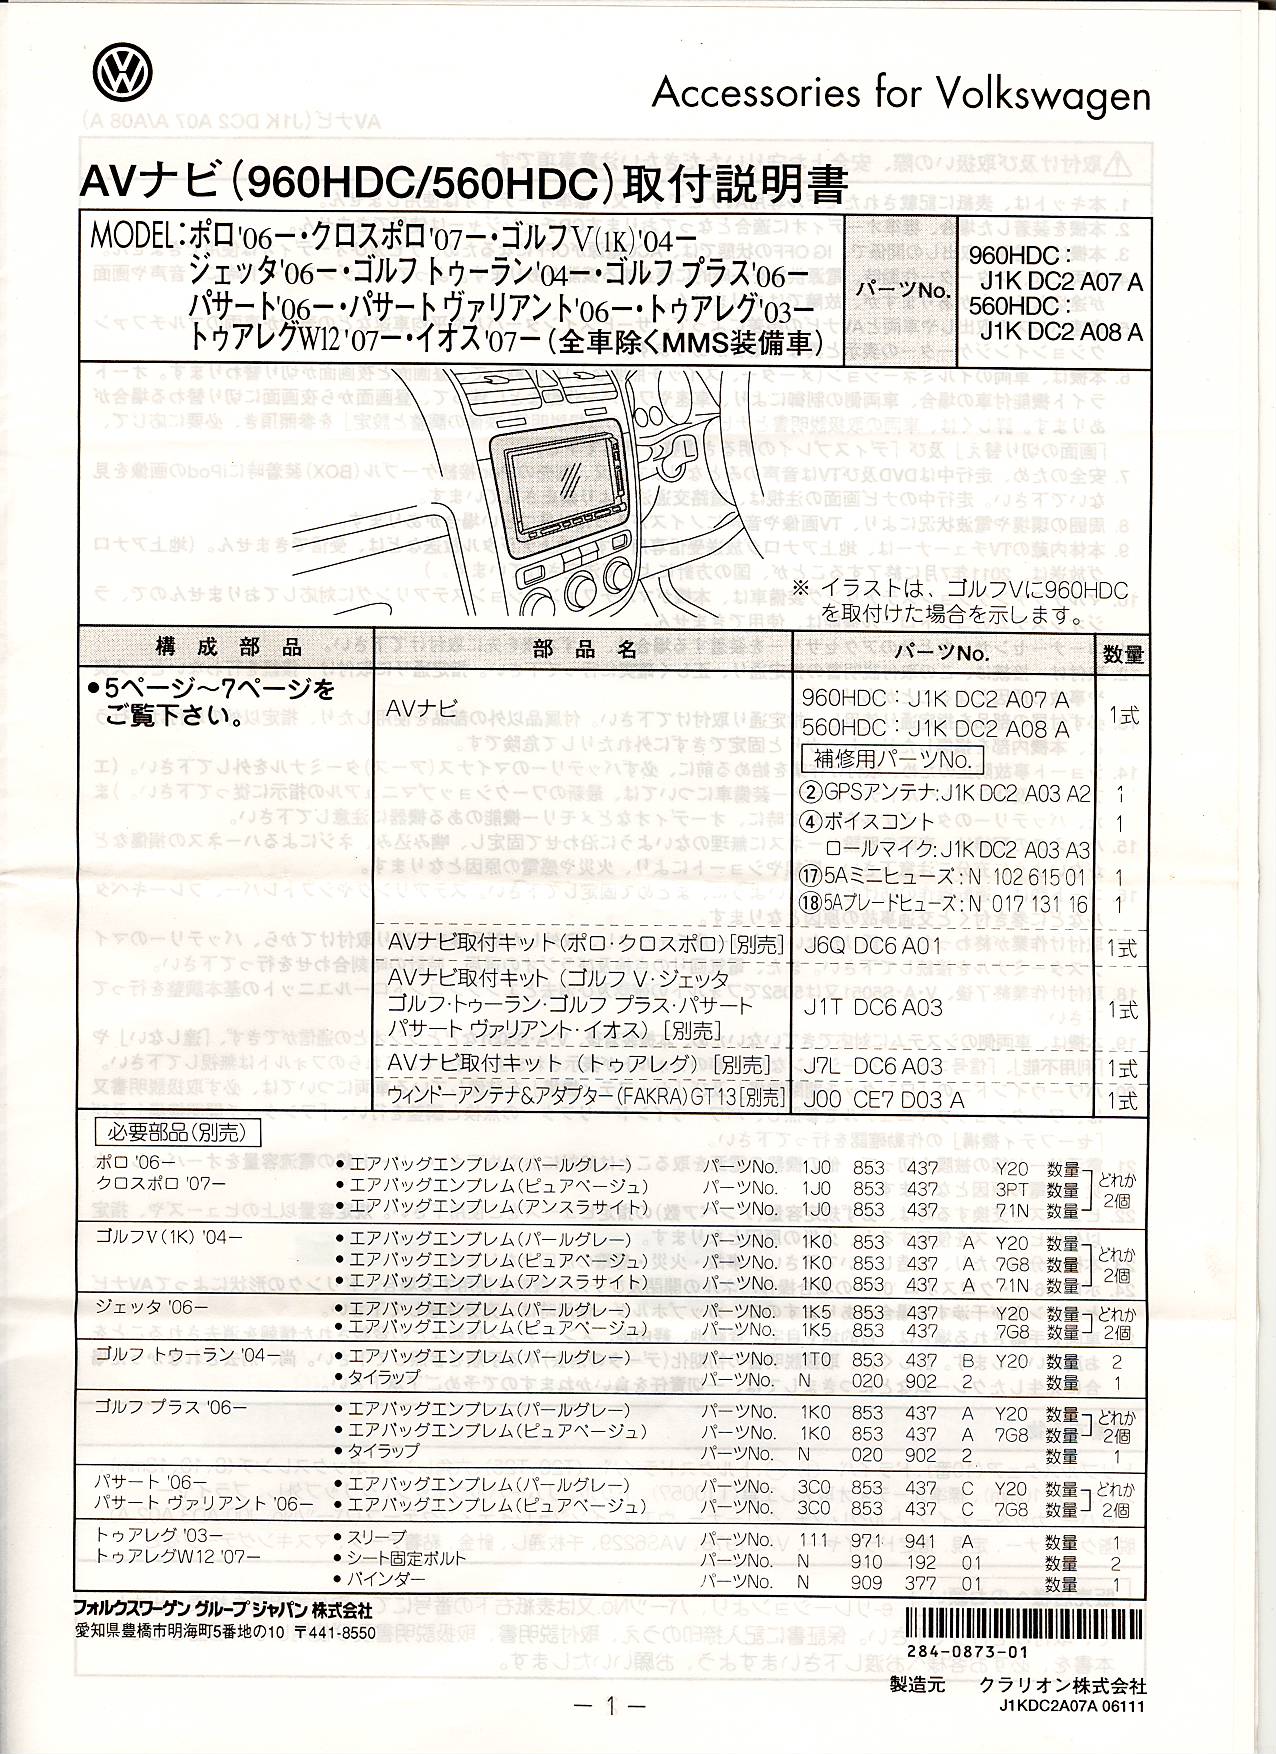 Accessories for Volkswagen
AVナビ(960HDC/560HDC)取付説明書
MODEL:ポロ'06ー・クロスポロ'07ー・ゴルフV(1K)'04ー
ジェッタ'06ー・ゴルフ トゥーラン'04ー・ゴルフ プラス'06ー
パサート'06ー・パサート ヴァリアント'06ー・トゥアレグ'03ー
トゥアレグW12 '07ー・イオス'07ー(全車除くMMS装備車)
パーツNo.
960HDC:
J1K DC2 A07 A
560HDC:
J1K DC2 A08 A
※ イラストは、ゴルフVに960HDC
を取付けた場合を示します。
構成部品 部品名 パーツNo. 数量
•5ページ〜7ページを
ご覧下さい。
AVナビ
960HDC:J1K DC2 A07 A
560HDC:J1K DC2 A08 A
1式
補修用パーツNo.
②GPSアンテナ:J1K DC2 A03 A2 1
④ボイスコント 1
ロールマイク:J1K DC2 A03 A3
⑰5Aミニヒューズ:N 102 615 01 1
⑱5Aブレードヒューズ:N 017 131 16 1
AVナビ取付キット(ポロ・クロスポロ)[別売] J6Q DC6 A01 1式
AVナビ取付キット(ゴルフ V・ジェッタ
ゴルフ・トゥーラン・ゴルフ プラス・パサート J1T DC6 A03 1式
パサート ヴァリアント・イオス)[別売]
AVナビ取付キット(トゥアレグ)[別売] J7L DC6 A03 1式
ウィンドーアンテナ&アダプター(FAKRA)GT13[別売] J00 CE7 D03 A 1式
必要部品(別売)
ポロ '06ー •エアバッグエンブレム(パールグレー) パーツNo. 1J0 853 437 Y20 数量
クロスポロ '07ー •エアバッグエンブレム(ピュアベージュ) パーツNo. 1J0 853 437 3PT 数量 どれか
•エアバッグエンブレム(アンスラサイト) パーツNo. 1J0 853 437 71N 数量 2個
ゴルフV(1K) '04ー •エアバッグエンブレム(パールグレー) パーツNo. 1K0 853 437 A Y20 数量
•エアバッグエンブレム(ピュアベージュ) パーツNo. 1K0 853 437 A 7G8 数量 どれか
•エアバッグエンブレム(アンスラサイト) パーツNo. 1K0 853 437 A 71N 数量 2個
ジェッタ '06ー •エアバッグエンブレム(パールグレー) パーツNo. 1K5 853 437 Y20 数量 どれか
•エアバッグエンブレム(ピュアベージュ) パーツNo. 1K5 853 437 7G8 数量 2個
ゴルフ トゥーラン '04ー •エアバッグエンブレム(パールグレー) パーツNo. 1T0 853 437 B Y20 数量 2
•タイラップ パーツNo. N 020 902 2 数量 1
ゴルフ プラス '06ー •エアバッグエンブレム(パールグレー) パーツNo. 1K0 853 437 A Y20 数量 どれか
•エアバッグエンブレム(ピュアベージュ) パーツNo. 1K0 853 437 A 7G8 数量 2個
•タイラップ パーツNo. N 020 902 2 数量 1
パサート '06ー •エアバッグエンブレム(パールグレー) パーツNo. 3C0 853 437 C Y20 数量 どれか
パサート ヴァリアント '06ー •エアバッグエンブレム(ピュアベージュ) パーツNo. 3C0 853 437 C 7G8 数量 2個
トゥアレグ '03ー •スリーブ パーツNo. 111 971 941 A 数量 1
トゥアレグW12 '07ー •シート固定ボルト パーツNo. N 910 192 01 数量 2
•バインダー パーツNo. N 909 377 01 数量 1
フォルクスワーゲン グループ ジャパン 株式会社
愛知県豊橋市明海町5番地の10 〒441-8550
284-0873-01
製造元 クラリオン株式会社
J1KDC2A07A 06111
ー 1 ー